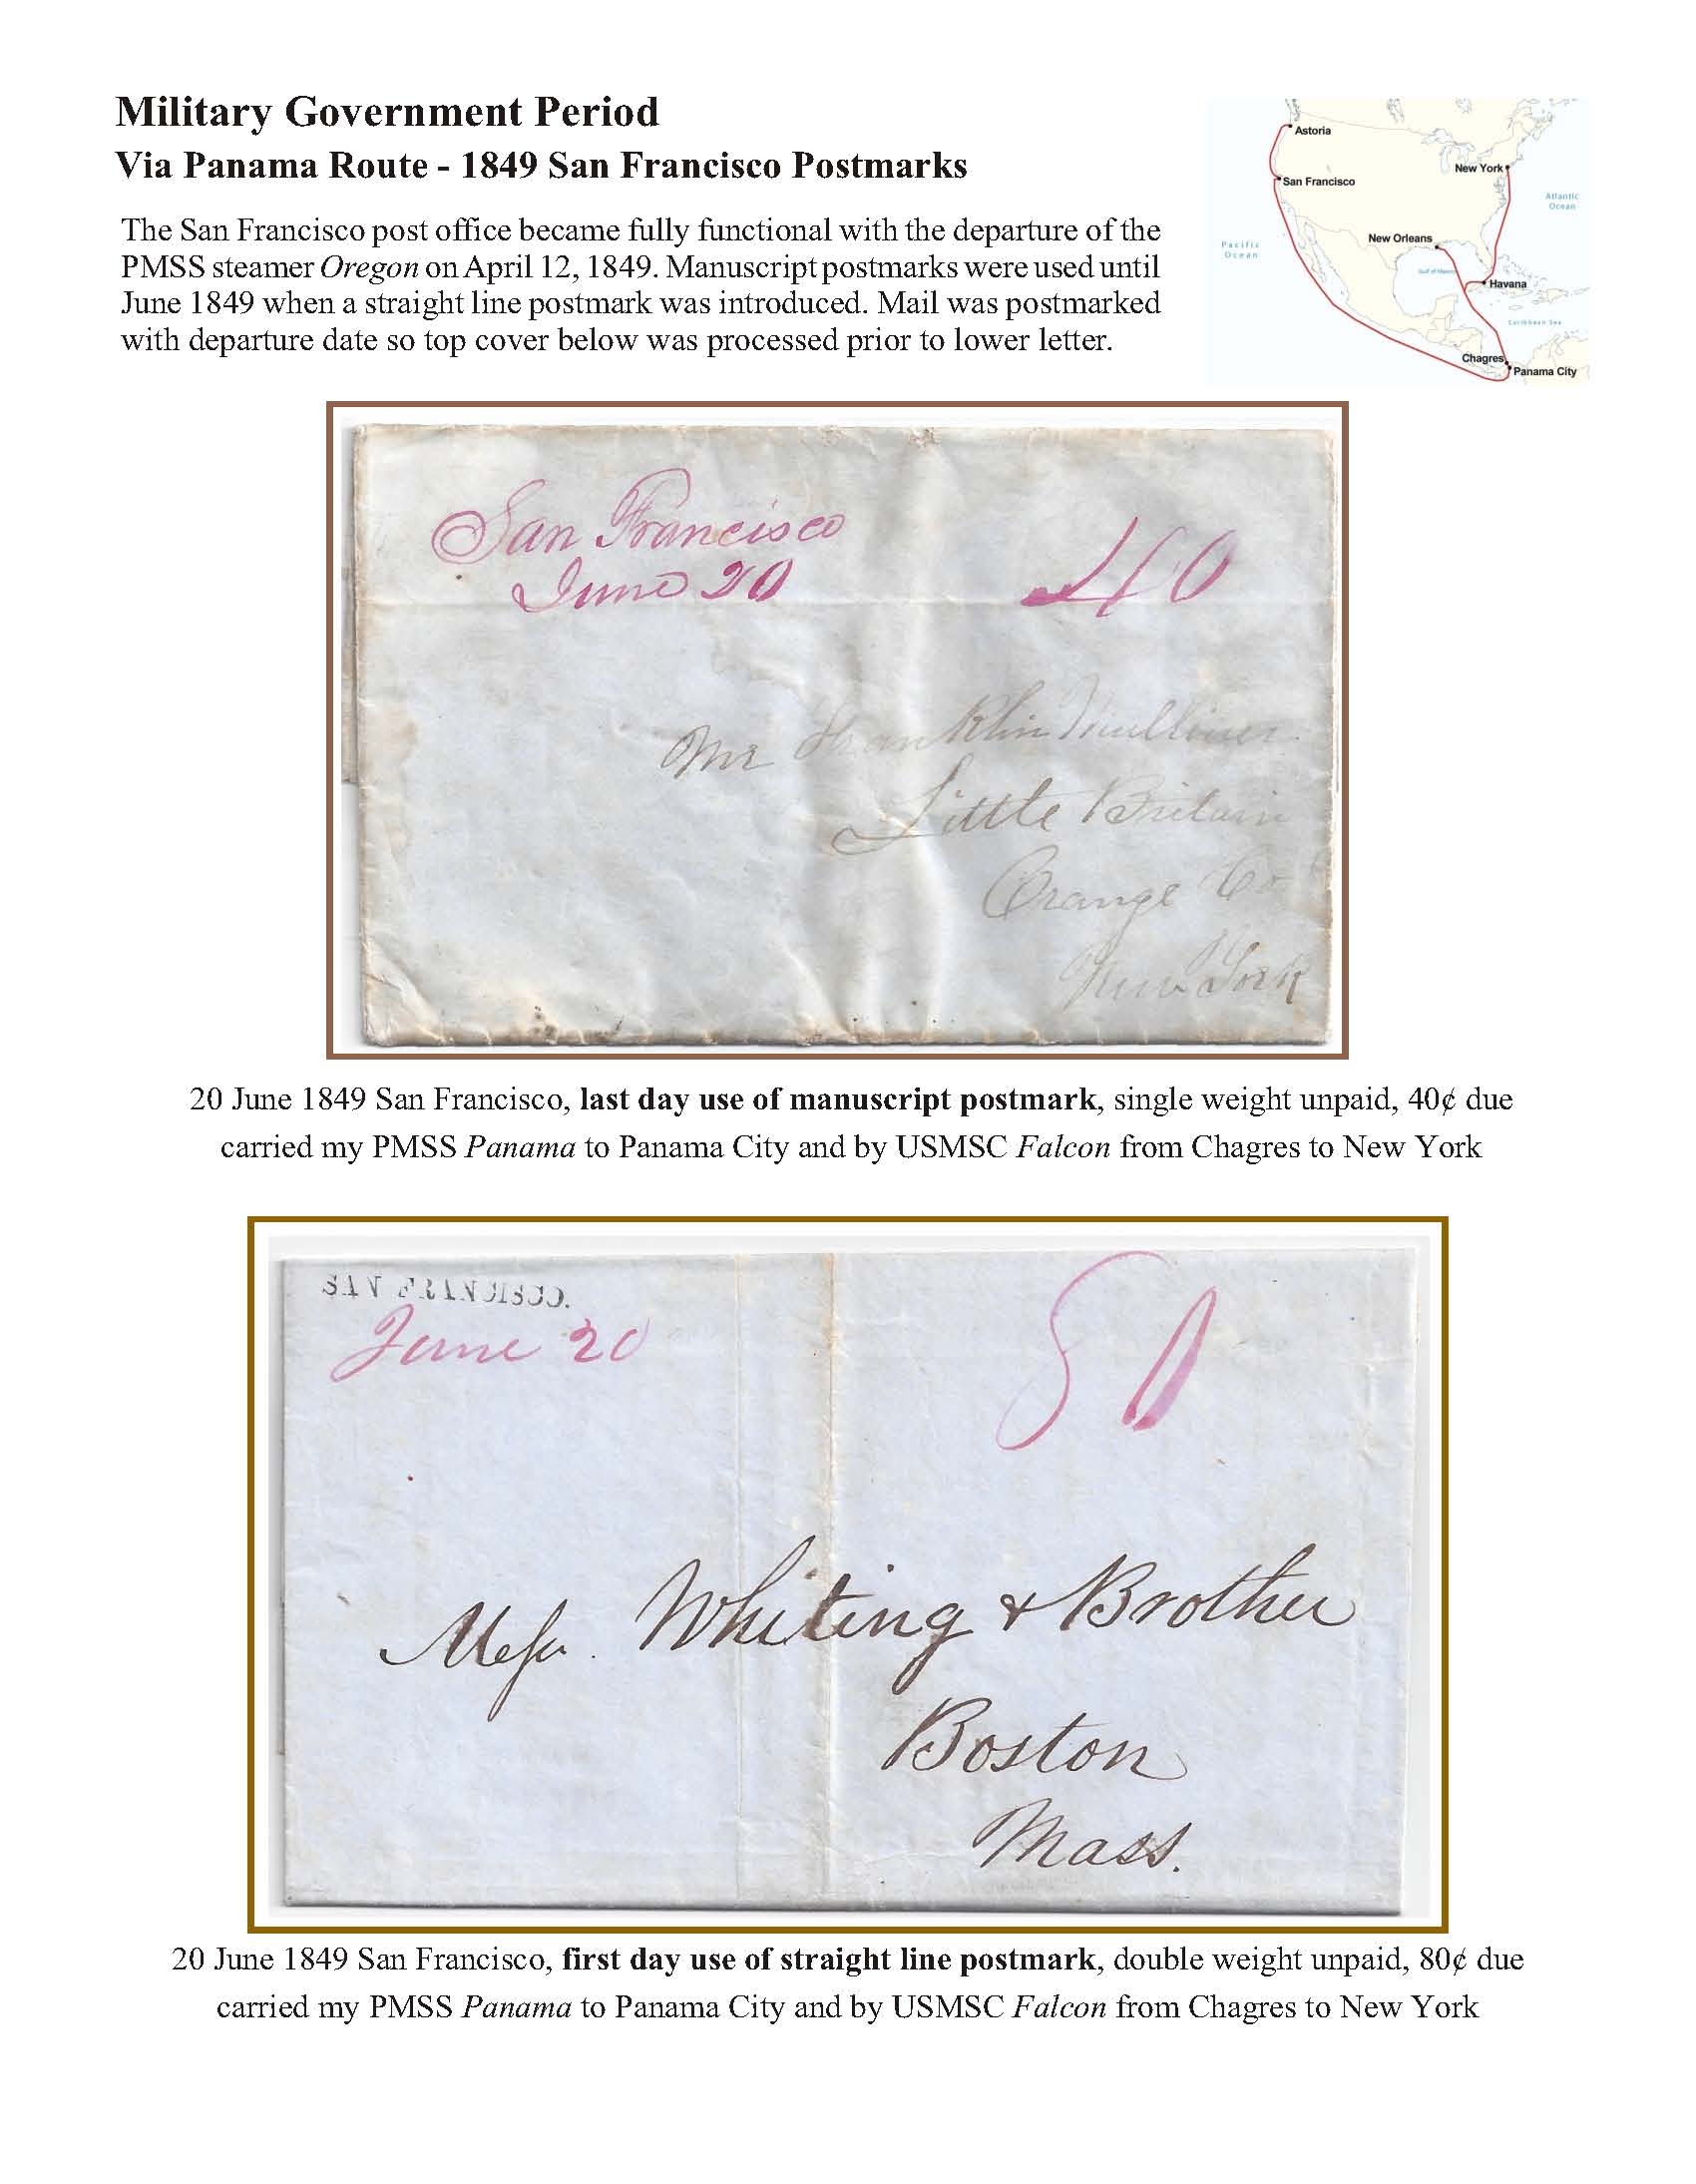 Military Government Period
Via Panama Route - 1849 San Francisco Postmarks
The San Francisco post office became fully functional with the departure of the
PMSS steamer Oregon on April 12, 1849. Manuscript postmarks were used until
June 1849 when a straight line postmark was introduced. Mail was postmarked
with departure date so top cover below was processed prior to lower letter.
Astoria
New York
San Francisco
Atlantic
Ocean
Pacific
Ocean
New Orleans
Gulf of Mexico
Havana
Caribbean Sea
Chagres
Panama City
San Francisco
June 20
40
Mr Franklin Mulliner
Little Britain
Orange Co
New York
20 June 1849 San Francisco, last day use of manuscript postmark, single weight unpaid, 40¢ due
carried my PMSS Panama to Panama City and by USMSC Falcon from Chagres to New York
SAN FRANCISCO.
June 20
80
Messr. Whiting & Brother
Boston
Mass.
20 June 1849 San Francisco, first day use of straight line postmark, double weight unpaid, 80¢ due
carried my PMSS Panama to Panama City and by USMSC Falcon from Chagres to New York